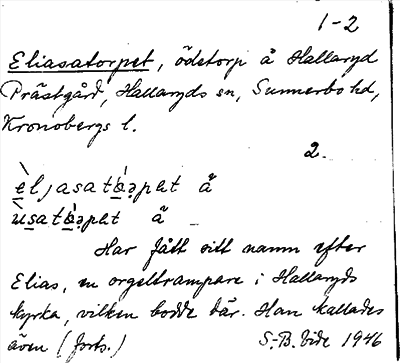 1-2
Eliasatorpet, ödetorp å Hallaryd
Prästgård, Hallaryds sn, Sunnerbo hd,
Kronobergs l.
2.
èljasatå̀ṛpət å
ùsatå̀ṛpət å
Har fått sitt namn efter
Elias, en orgeltrampare i Hallaryds
kyrka, vilken bodde där. Han kallades
även (forts.) S.-B. Vide 1946